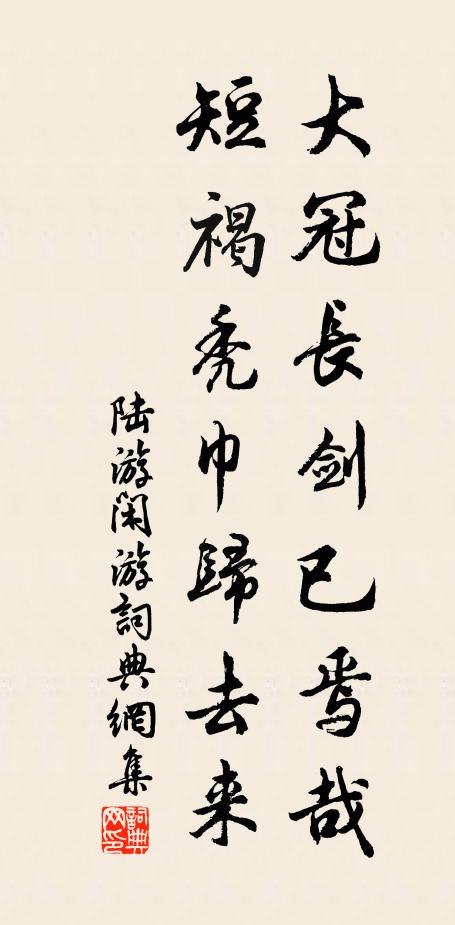 大冠長劍已焉哉
短褐秃巾歸去来
陆游閑游詞典網集
詞典网印